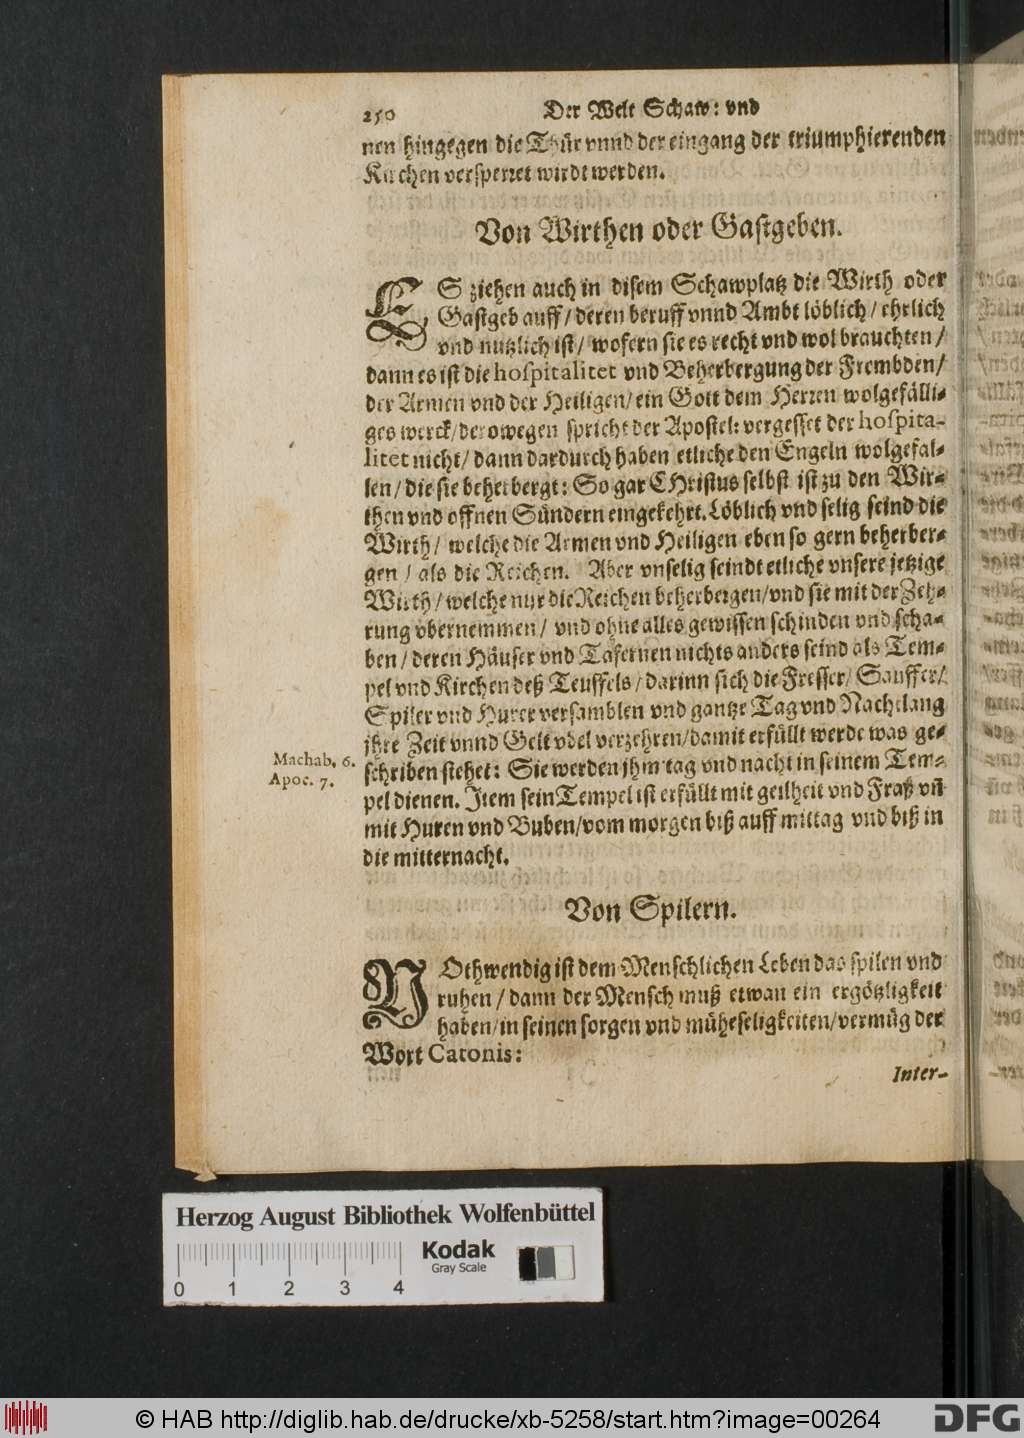 250 Der Welt Schaw: vnd
nen hingegen die Thür vnnd der eingang der triumphierenden
Kirchen versperret wirdt werden.
Von Wirthen oder Gastgeben.
ES ziehen auch in disem Schawplatz die Wirth oder
Gastgeb auff / deren beruff vnnd Ambt löblich / ehrlich
vnd nutzlich ist / wofern sie es recht vnd wol brauchten /
dann es ist die hospitalitet vnd Beherbergung der Frembden /
der Armen vnd der Heiligen / ein Gott dem Herren wolgefälli-
ges werck / derowegen spricht der Apostel: vergesset der hospita-
litet nicht / dann dardurch haben etliche den Engeln wolgefal-
len / die sie beherbergt: So gar CHristus selbst ist zu den Wir-
then vnd offnen Sündern eingekehrt. Löblich vnd selig seind die
Wirth / welche die Armen vnd Heiligen eben so gern beherber-
gen / als die Reichen. Aber vnselig seindt etliche vnsere jetzige
Wirth / welche nur die Reichen beherbergen / vnd sie mit der Zeh-
rung vbernemmen / vnd ohne alles gewissen schinden vnd scha-
ben / deren Häuser vnd Tafernen nichts anders seind als Tem-
pel vnd Kirchen deß Teuffels / darinn sich die Fresser / Sauffer /
Spiler vnd Hurer versamblen vnd gantze Tag vnd Nacht lang
jhre Zeit vnnd Gelt vbel verzehren / damit erfüllt werde was ge-
schriben stehet: Sie werden jhm tag vnd nacht in seinem Tem-
pel dienen. Item sein Tempel ist erfüllt mit geilheit vnd Fraß vñ
mit Huren vnd Buben / vom morgen biß auff mittag vnd biß in
die mitternacht.
Machab. 6.
Apoc. 7.
Von Spilern.
NOthwendig ist dem Menschlichen Leben das spilen vnd
ruhen / dann der Mensch muß etwan ein ergötzligkeit
haben / in seinen sorgen vnd müheseligkeiten / vermüg der
Wort Catonis:
Inter-
Herzog August Bibliothek Wolfenbüttel
Kodak
Gray Scale
0 1 2 3 4
© HAB http://diglib.hab.de/drucke/xb-5258/start.htm?image=00264
DFG